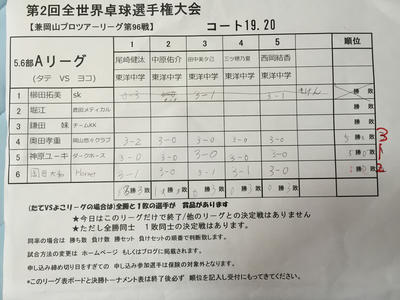 第2回全世界卓球選手権大会
【兼岡山プロツアーリーグ第96戦】 コート19.20
5.6部Aリーグ 1 2 3 4 5 順位
(タテ VS ヨコ) 尾崎健太 中原佑介 田中美夕己 三ツ橋乃里 西岡結香
東洋中学 東洋中学 東洋中学 東洋中学 東洋中学
1 柳田拓美 sk 3-1 3-1 きけん 勝 敗
2 堀江 鹿田メディカル 勝 敗
3 鎌田 妹 チームKK 勝 敗
4 奥田孝重 岡山悠々クラブ 3-2 3-0 3-0 3-0 3-0 5 勝 0 敗 3
5 神原ユーキ ダークホース 3-0 3-0 3-0 3-0 3-0 勝 敗 1
6 3-1 3-0 3-1 3-1 3-0 勝 0 敗 2
勝 3 敗 勝 敗 勝 敗 勝 敗 勝 敗
(たてVSよこリーグの場合は)全勝と 1敗の選手が 賞品があります
★今日はこのリーグだけで終了/他のリーグとの決定戦はありません
★ただし全勝同士 1敗同士の決定戦はあります。
同率の場合は 勝ち数 負け数 勝セット 負けセットの順番で判断致します。
試合方法の変更は ホームページ もしくはブログに掲載されます。
申し込み締め切り日をすぎての 申し込み参加選手は保険の対象外となります。
*このリーグ表ボードと決勝トーナメント表は終了後必ず 順位を記入し受付にもってきてください。